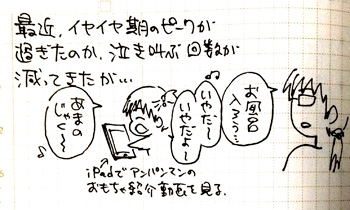 最近、イヤイヤ期のピークが
過ぎたのか、泣き叫ぶ回数が
減ってきたが…
お風呂
入ろう…
いやだ〜
いやだよ〜
あまの
じゃく〜
iPadでアンパンマンの
おもちゃ紹介動画を見る.